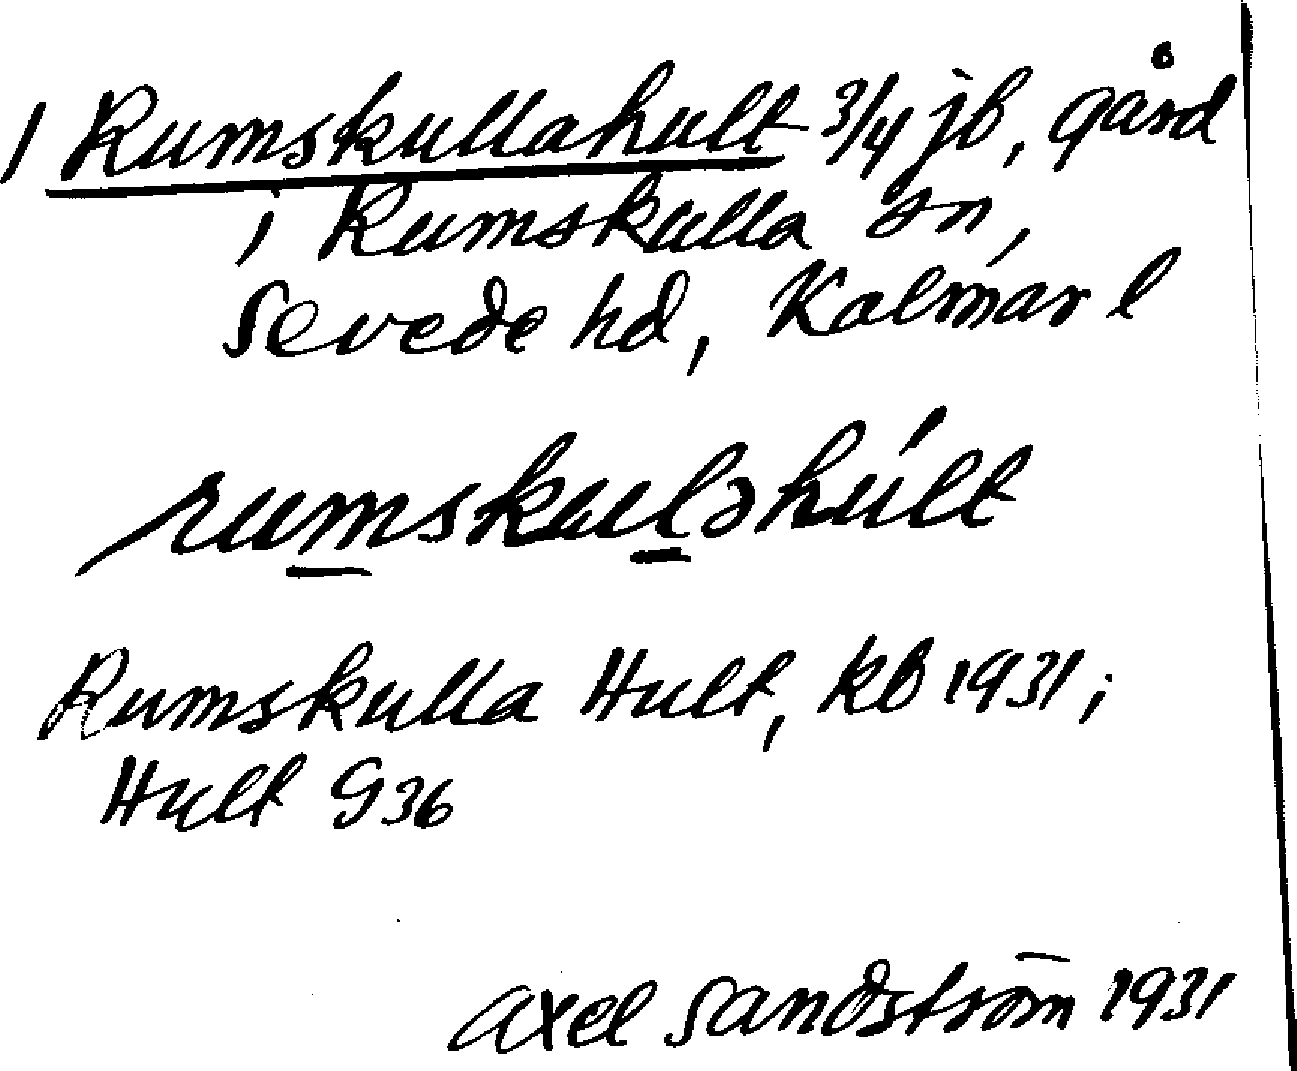 1 Rumskullahult 3/4 jb, gård
i Rumskulla sn,
Sevede hd, Kalmar l
rumskuləhúlt
Rumskulla Hult, kb 1931;
Hult G36
Axel Sandström 1931